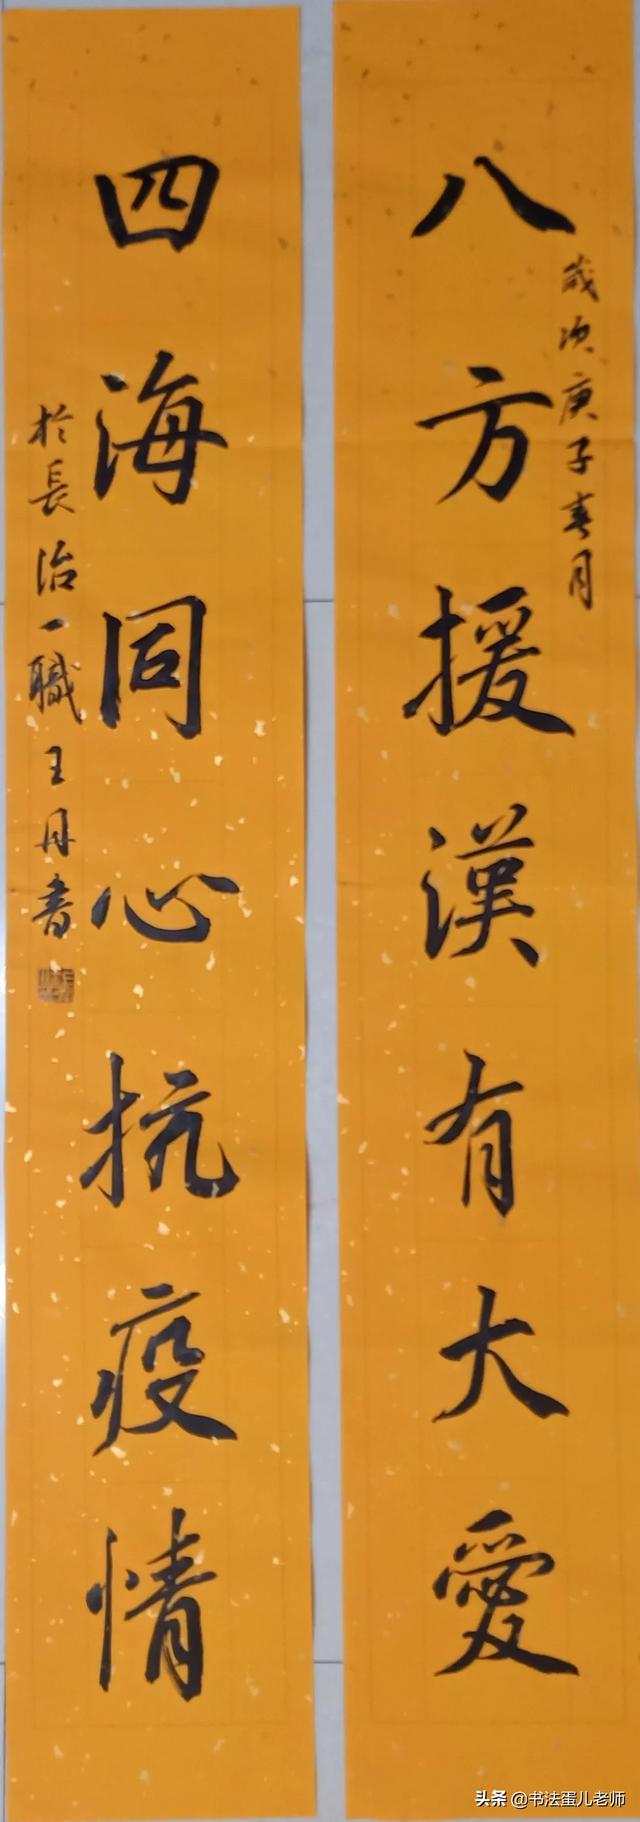 八方援漢有大愛
歲次庚子春月
四海同心抗疫情
於長治一職王丹書
头条 @书法蛋儿老师